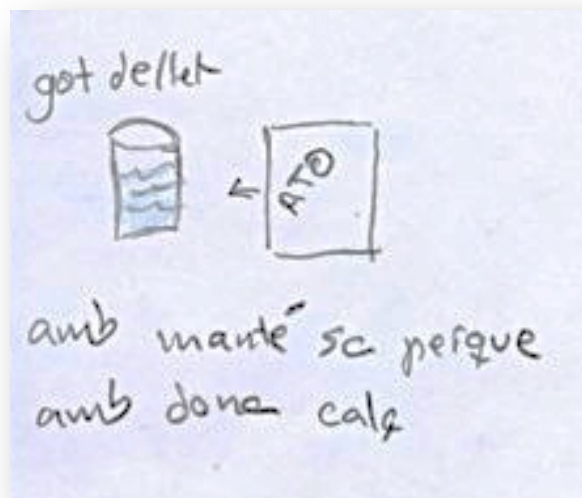 got dellet
ATO
amb manté sa perque
amb dona calç